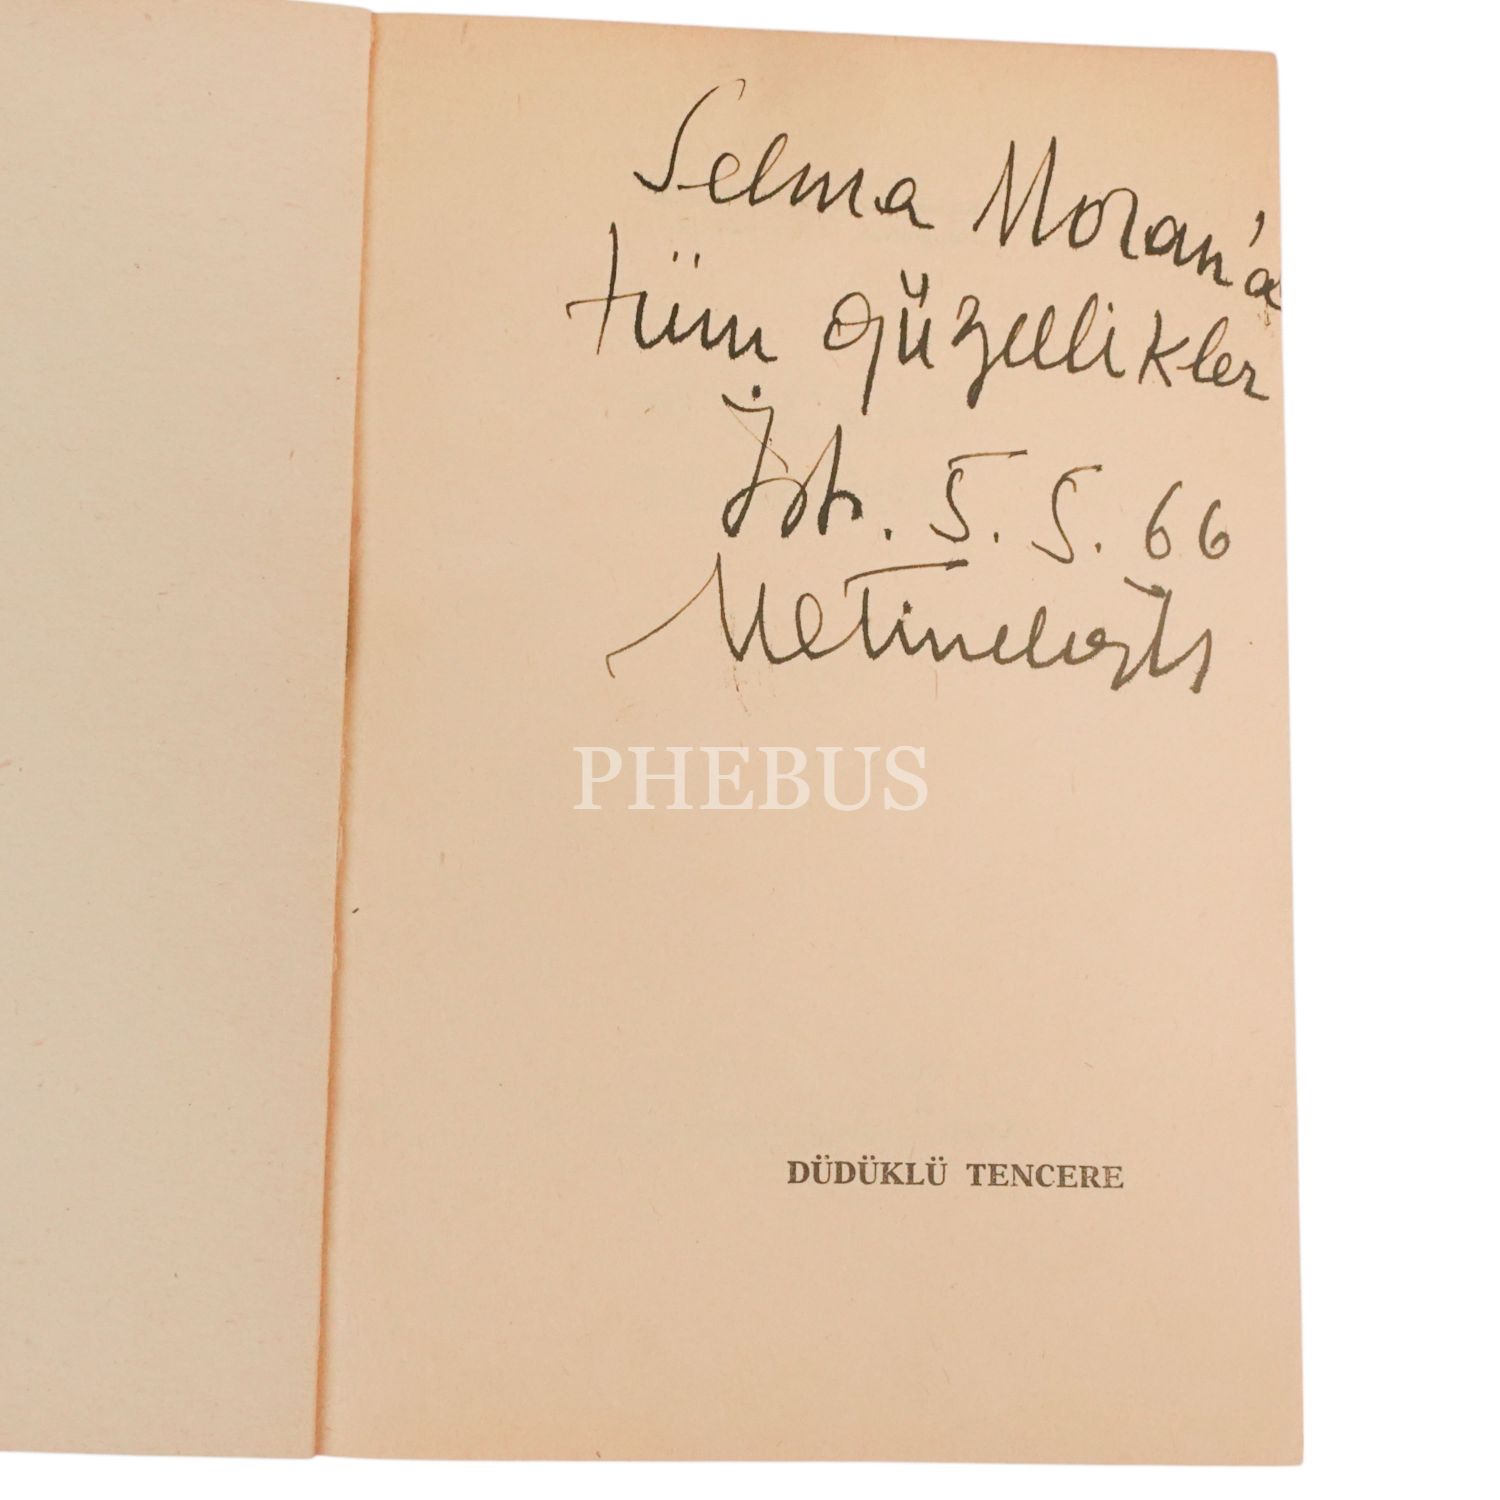 Selma Moran'a
tüm güzellikler
İst. 5.5.66
Metineloğlu
PHEBUS
DÜDÜKLÜ TENCERE